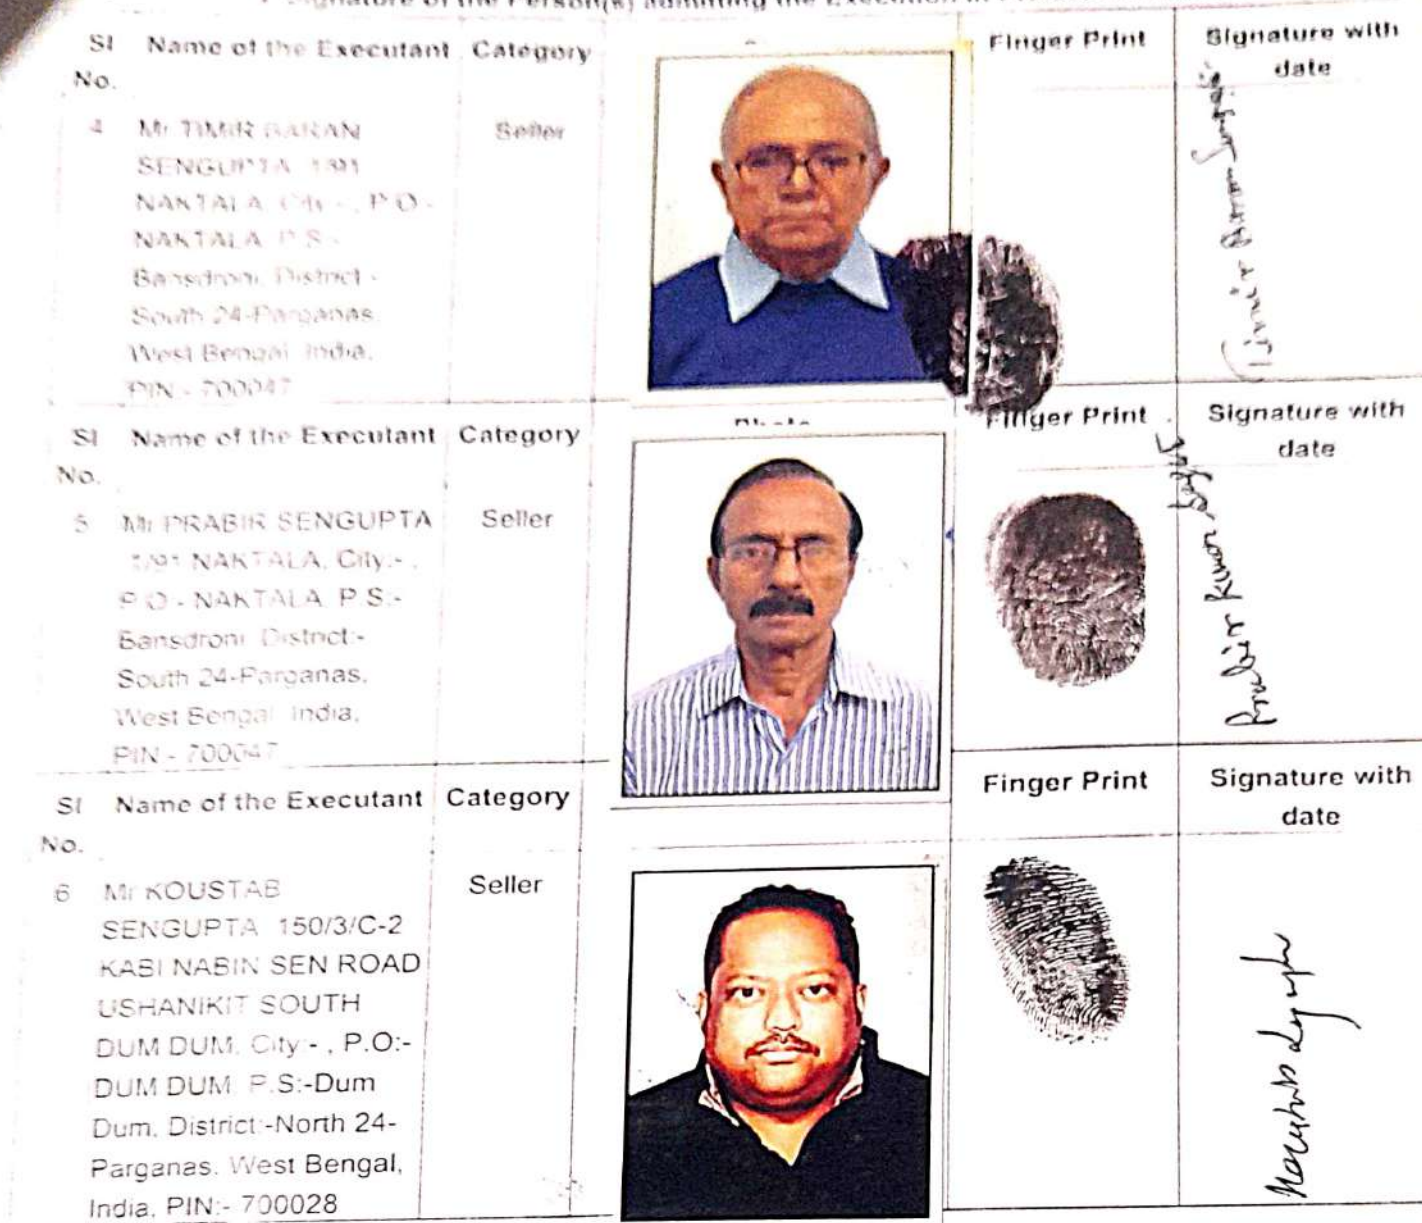 Signature of the Person(s) admitting the Execution
Sl No. Name of the Executant Category Finger Print Signature with date
4 Mr TIMIR BARAN Seller
SENGUPTA 1/91
NAKTALA, City:- , P.O:-
NAKTALA, P.S:-
Bansdroni, District:-
South 24-Parganas,
West Bengal, India,
PIN:- 700047
Timir Baran Sengupta
Sl No. Name of the Executant Category Photo Finger Print Signature with date
5 Mr PRABIR SENGUPTA Seller
1/91 NAKTALA, City:- ,
P.O:- NAKTALA, P.S:-
Bansdroni, District:-
South 24-Parganas,
West Bengal, India,
PIN:- 700047
Prabir Kumar
Sl No. Name of the Executant Category Finger Print Signature with date
6 Mr KOUSTAB Seller
SENGUPTA 150/3/C-2
KABI NABIN SEN ROAD
USHANIKIT SOUTH
DUM DUM, City:- , P.O:-
DUM DUM, P.S:-Dum
Dum, District:-North 24-
Parganas, West Bengal,
India, PIN:- 700028